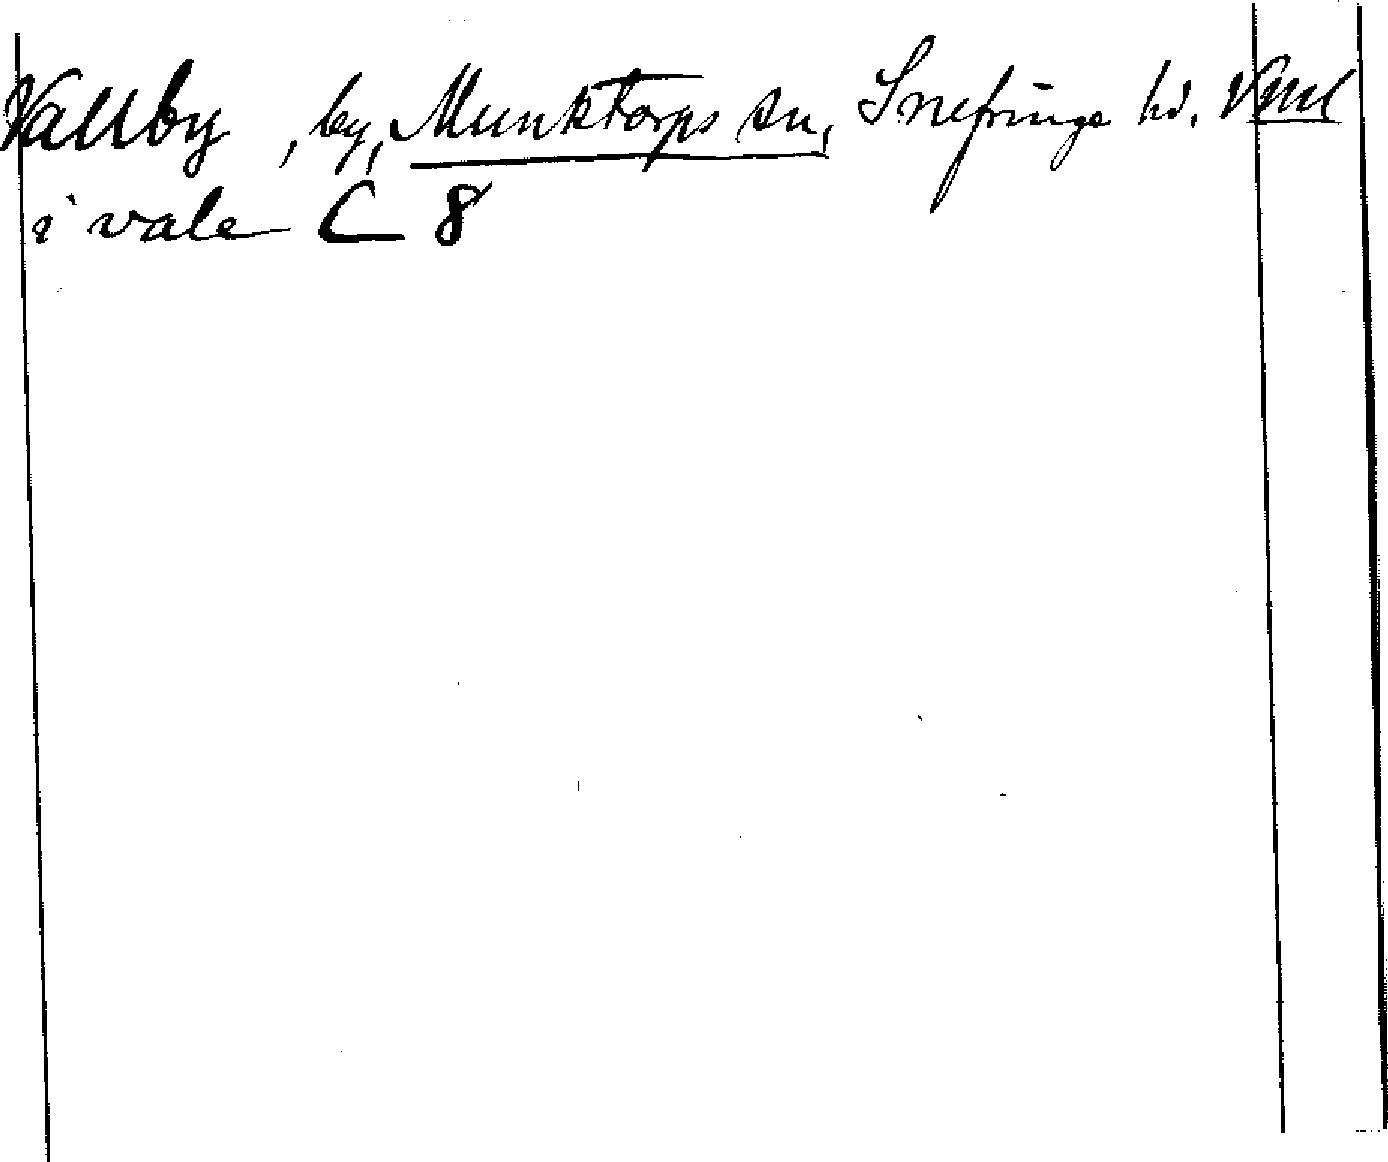 Vallby, by, Munktorps sn, Snefringe hd. Vsml
i vale C 8